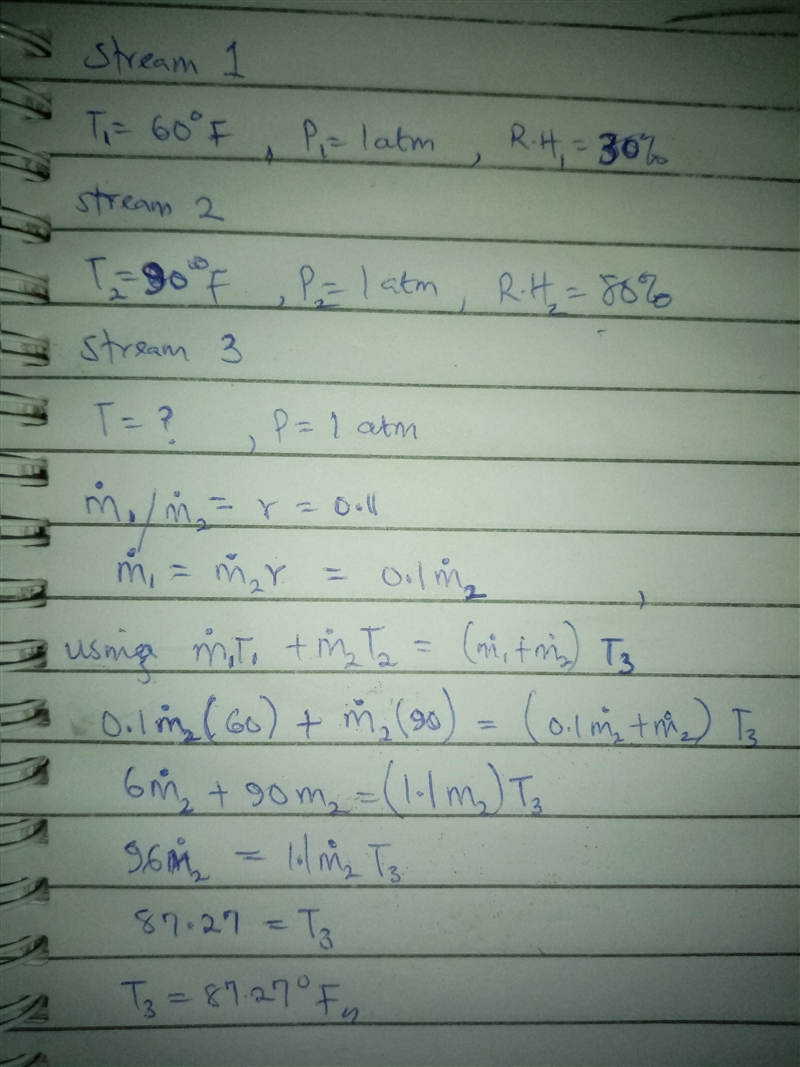 Stream 1
T₁ = 60°F , P₁ = 1 atm , R.H₁ = 30%
stream 2
T₂ = 90°F , P₂ = 1 atm , R.H₂ = 80%
Stream 3
T = ? , P = 1 atm
ṁ₁/ṁ₂ = r = 0.1
ṁ₁ = ṁ₂r = 0.1ṁ₂ ,
using ṁ₁T₁ + ṁ₂T₂ = (ṁ₁+ṁ₂) T₃
0.1ṁ₂(60) + ṁ₂(90) = (0.1ṁ₂+ṁ₂) T₃
6ṁ₂ + 90m₂ = (1.1m₂)T₃
96ṁ₂ = 1.1ṁ₂ T₃
87.27 = T₃
T₃ = 87.27°F